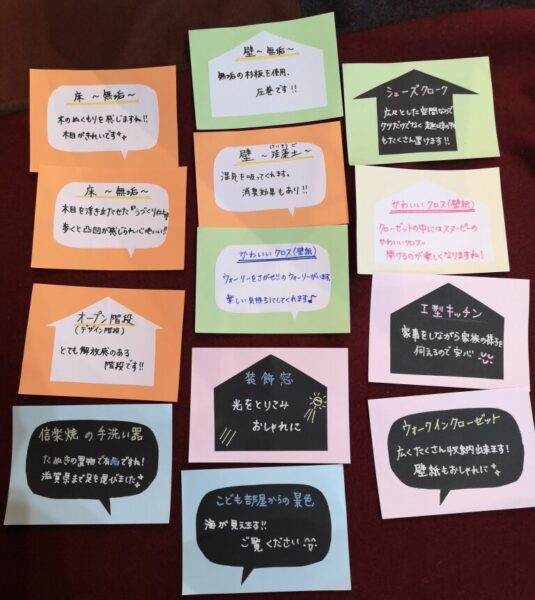 床 ～無垢～
木のぬくもりを感じますね!!
木目がきれいです
床 ～無垢～
木目を浮き立たせた"うづくり仕上"
歩くと凸凹が感じられ心地いい!!
オープン階段
(デザイン階段)
とても解放感のある
階段です!!
信楽焼の手洗い器
たぬきの置物で有名ですね!
滋賀県まで足を運びました
壁～無垢～
無垢の杉板を使用、
圧巻です!!
壁～珪藻土～
けいそうど
湿気を吸ってくれます。
消臭効果もあり!!
かわいいクロス(壁紙)
ウォーリーをさがせ!!のウォーリーがいます。
楽しい気持ちにしてくれます♪
装飾窓
光をとりこみ
おしゃれに
こども部屋からの景色
海が見えます!!
ご覧ください
シューズクローク
広々とした空間なので
クツだけでなく
もたくさん置けます!!
かわいいクロス(壁紙)
クローゼットの中にはスヌーピーの
かわいいクロス。
開けるのが楽しくなりますね!
I型キッチン
家事をしながら家族の様子を
伺えるので安心
ウォークインクローゼット
広くたくさん収納出来ます!
壁紙もおしゃれに